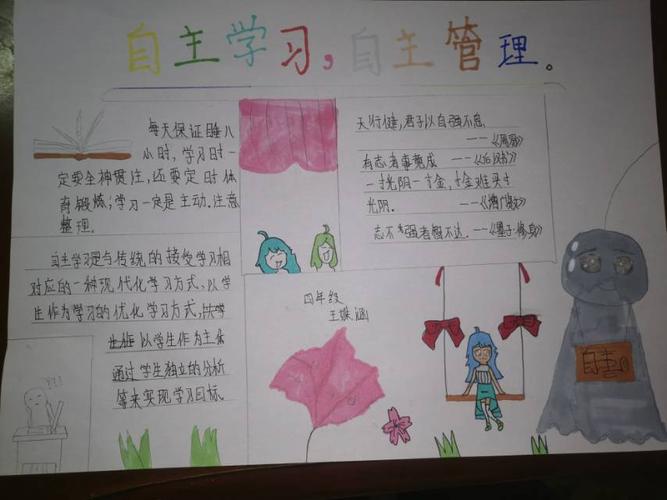 自主学习，自主管理。
每天保证睡八
小时，学习时一
定要全神贯注，还要定时体
育锻炼；学习一定是主动，注意
整理。
自主学习是与传统的接受学习相
对应的一种现代化学习方式，以学
生作为学习的优化学习方式，
以学生作为主体
通过学生独立的分析
等来实现学习目标
天行健，君子以自强不息
——《周易》
有志者事竟成 ——《后汉书》
一寸光阴一寸金，寸金难买寸
光阴。
志不强者智不达。——《墨子·修身》
四年级
王 涵
自